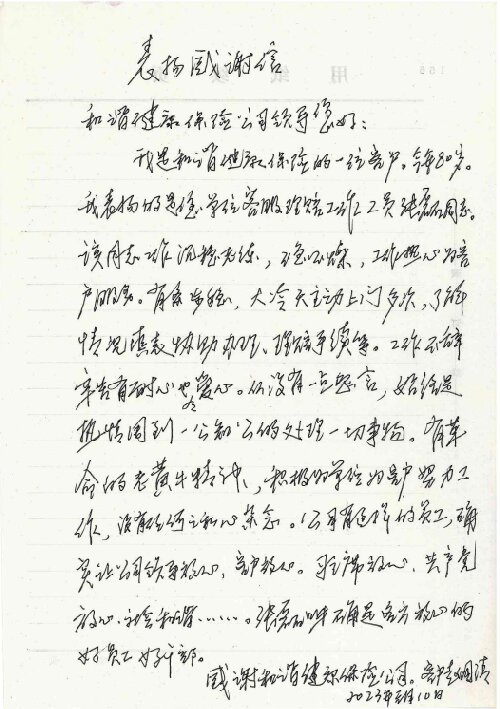 表扬感谢信
和谐健康保险公司领导您好：
我是和谐健康保险的一位客户。今年80岁。
我表扬的是您单位客服理赔工作人员张磊同志。
该同志工作沉稳老练，稳不躁，工作热心为客
户服务。有条步稳，大冷天主动上门多次，了解
情况填表协助办理、理赔手续等。工作不辞
辛苦有耐心也有爱心。从没有一点怨言，始终是
热情周到一公知公的处理一切事给。有革
命的老黄牛精神，积极的单位为客户努力工
作，没有任何之私心杂念。公司有这样的员工，确
实让公司领导放心，客户放心。主席放心、共产党
放心、社会和谐……。张磊的确是各方放心的
好员工好干部。
感谢和谐健康保险公司。客户
2023年 月10日